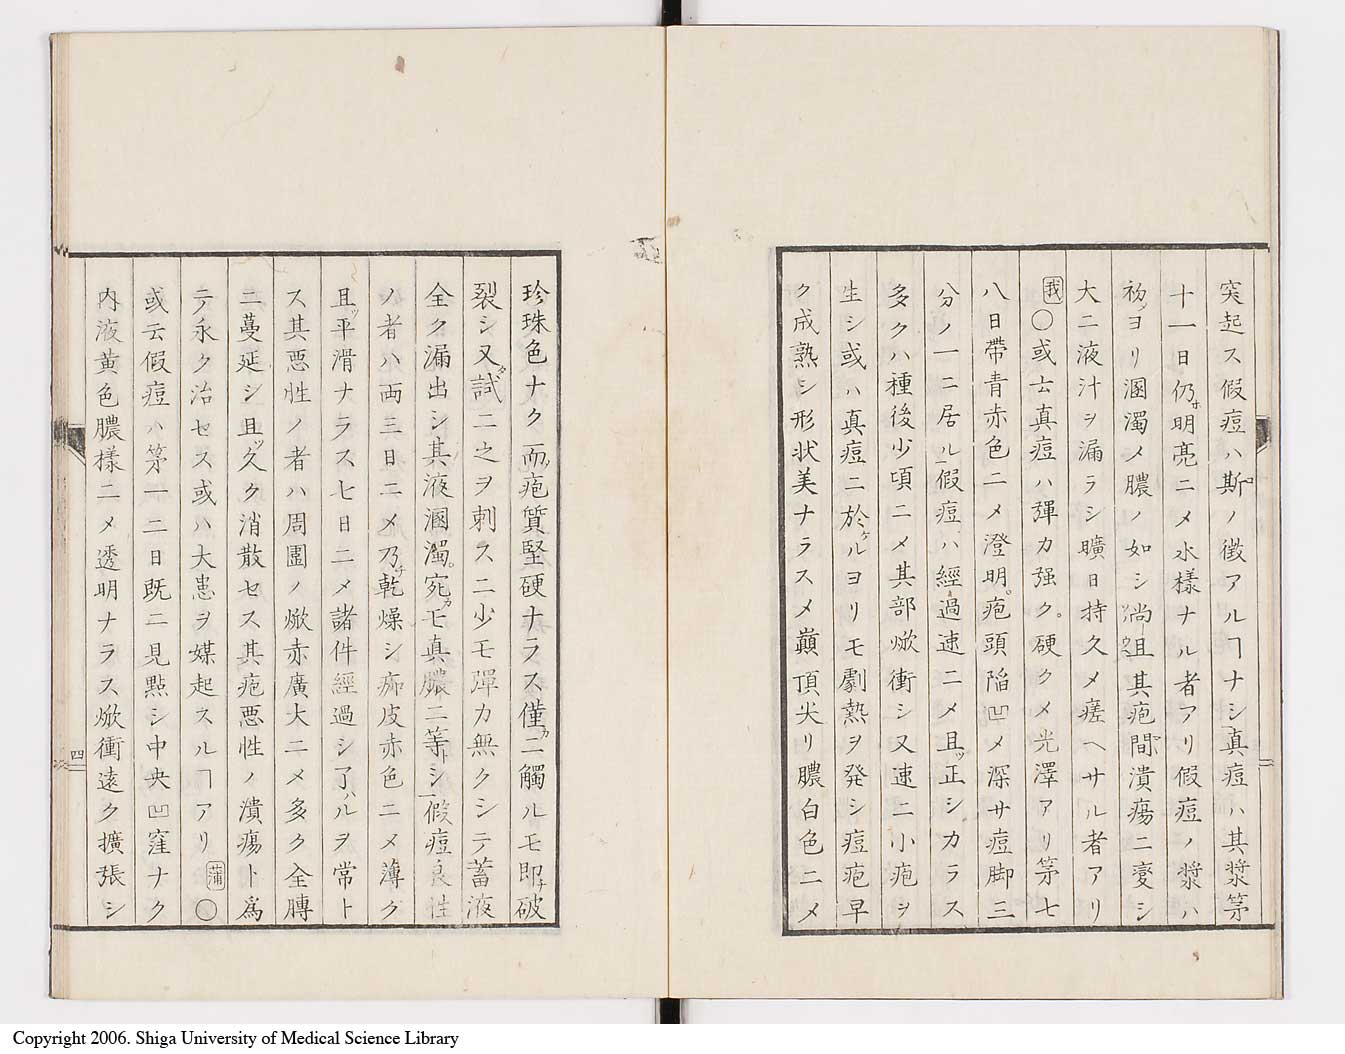 突起ス假痘ハ斯ノ徴アルヿナシ真痘ハ其漿第
十一日仍明亮ニメ水様ナル者アリ假痘ノ漿ハ
初ヨリ溷濁メ膿ノ如シ尚且其疱間潰瘍ニ変シ
大ニ液汁ヲ漏ラシ曠日持久メ瘥ヘサル者アリ
我〇或云真痘ハ彈力强ク。硬クメ光澤アリ第七
八日帶青赤色ニメ澄明。疱頭陥凹メ深サ痘脚三
分ノ一ニ居ル假痘ハ經過速ニメ且ッ正シカラス
多クハ種後少頃ニメ其部焮衝シ又速ニ小疱ヲ
生シ或ハ真痘ニ於ケルヨリモ劇熱ヲ発シ痘疱早
ク成熟シ形状美ナラスメ巔頂尖リ膿白色ニメ
珍珠色ナク而疱質堅硬ナラス僅ニ觸ルモ即破
裂シ又試ニ之ヲ刺スニ少モ彈力無クシテ蓄液
全ク漏出シ其液溷濁。宛モ真膿ニ等シ假痘良性
ノ者ハ両三日ニメ乃乾燥シ痂皮赤色ニメ薄ク
且ッ平滑ナラス七日ニメ諸件經過シ了ハルヲ常ト
ス其悪性ノ者ハ周圍ノ焮赤廣大ニメ多ク全膊
ニ蔓延シ且ッ久ク消散セス其疱悪性ノ潰瘍ト為
テ永ク治セス或ハ大患ヲ媒起スルヿアリ蒲〇
或云假痘ハ第一二日既ニ見點シ中央凹窪ナク
内液黄色膿様ニメ透明ナラス焮衝遠ク擴張シ
四
Copyright 2006. Shiga University of Medical Science Library